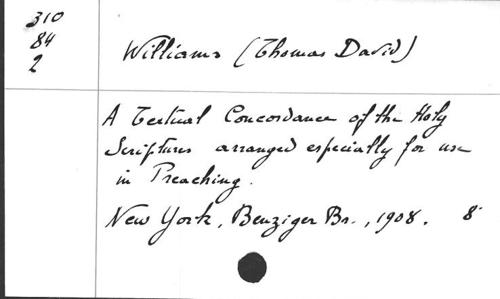 310
84
2
Williams (Thomas David)
A Textual Concordance of the Holy
Scriptures arranged especially for use
in Preaching.
New York, Benziger Br., 1908. 8°